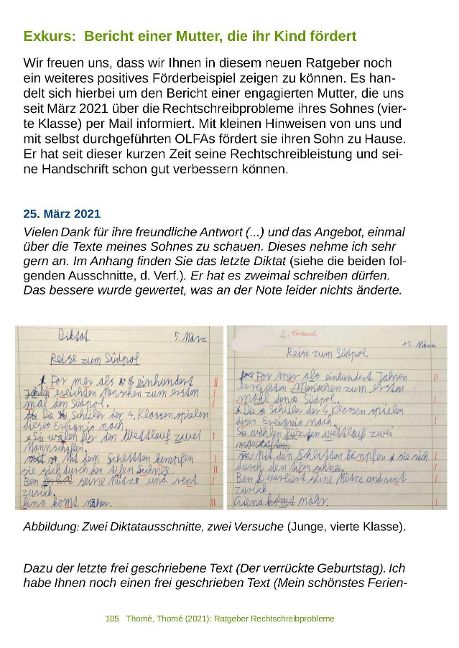 Exkurs: Bericht einer Mutter, die ihr Kind fördert
Wir freuen uns, dass wir Ihnen in diesem neuen Ratgeber noch
ein weiteres positives Förderbeispiel zeigen zu können. Es han-
delt sich hierbei um den Bericht einer engagierten Mutter, die uns
seit März 2021 über die Rechtschreibprobleme ihres Sohnes (vier-
te Klasse) per Mail informiert. Mit kleinen Hinweisen von uns und
mit selbst durchgeführten OLFAs fördert sie ihren Sohn zu Hause.
Er hat seit dieser kurzen Zeit seine Rechtschreibleistung und sei-
ne Handschrift schon gut verbessern können.
25. März 2021
Vielen Dank für ihre freundliche Antwort (...) und das Angebot, einmal
über die Texte meines Sohnes zu schauen. Dieses nehme ich sehr
gern an. Im Anhang finden Sie das letzte Diktat (siehe die beiden fol-
genden Ausschnitte, d. Verf.). Er hat es zweimal schreiben dürfen.
Das bessere wurde gewertet, was an der Note leider nichts änderte.
Diktat 5. März
Reise zum Südpol
For mer als einhundert
erreichten Menschen zum ersten
mal den Südpol.
Die Schüler der 4. Klassen spielen
dieses Ereignis nach.
Sie wählen für den Wettlauf zwei
Manschaften.
Mit dem Schlitten kämpfen
sie sich durch den
Ben seine Mütze und rent
zurück.
2. Versuch
12. März
Reise zum Südpol
For mer als einhundert Jahren
erreichten Menschen zum ersten
mahl den Südpol.
Die Schüler der 4. Klassen spielen
dises Ereignis nach.
Sie wählen für den wettlauf zwei
manschaften.
Mit den Schlitten kämpfen sie sich
durch den
Ben verliert seine Mütze und rent
zurück
Abbildung: Zwei Diktatausschnitte, zwei Versuche (Junge, vierte Klasse).
Dazu der letzte frei geschriebene Text (Der verrückte Geburtstag). Ich
habe Ihnen noch einen frei geschrieben Text (Mein schönstes Ferien-
105 Thomé, Thomé (2021): Ratgeber Rechtschreibprobleme